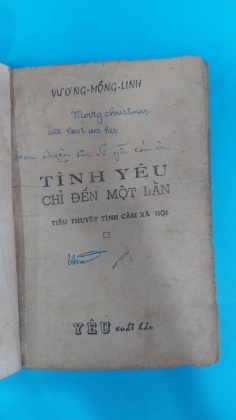 VƯƠNG-MỘNG-LINH
Merry christmas
all best
TÌNH YÊU
CHỈ ĐẾN MỘT LẦN
TIỂU THUYẾT TÌNH CẢM XÃ HỘI
YÊU xuất bản